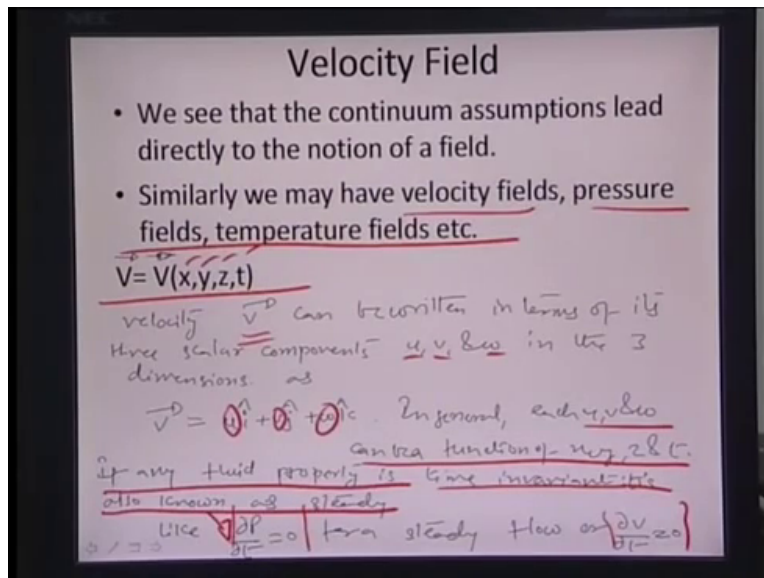 Velocity Field
• We see that the continuum assumptions lead
directly to the notion of a field.
• Similarly we may have velocity fields, pressure
fields, temperature fields etc.
V= V(x,y,z,t)
velocity V can be written in terms of its
three scalar components u, v, & w in the 3
dimensions as
V = uî + vĵ + wk̂. In general, each u, v & w
can be a function of x, y, z & t.
If any fluid property is time invariant it's
also known as steady
Like ∂P/∂t = 0 for a steady flow or ∂V/∂t = 0